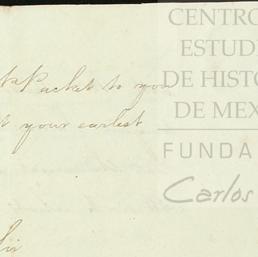 CENTRO
ESTUDI
DE HISTO
DE MEX
FUNDA
Carlos
Packet to you
your earliest
Sir